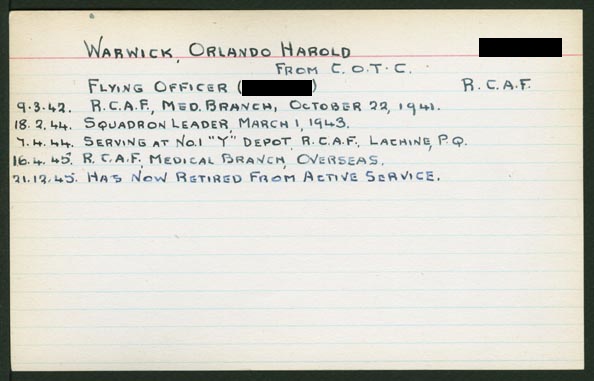 WARWICK, ORLANDO HAROLD
FROM C.O.T.C.
FLYING OFFICER ( ) R.C.A.F.
9.3.42. R.C.A.F., MED. BRANCH, OCTOBER 22, 1941.
18.2.44. SQUADRON LEADER, MARCH 1, 1943.
7.4.44. SERVING AT NO.1 "Y" DEPOT R.C.A.F., LACHINE, P.Q.
16.4.45. R.C.A.F. MEDICAL BRANCH, OVERSEAS.
21.12.45. HAS NOW RETIRED FROM ACTIVE SERVICE.